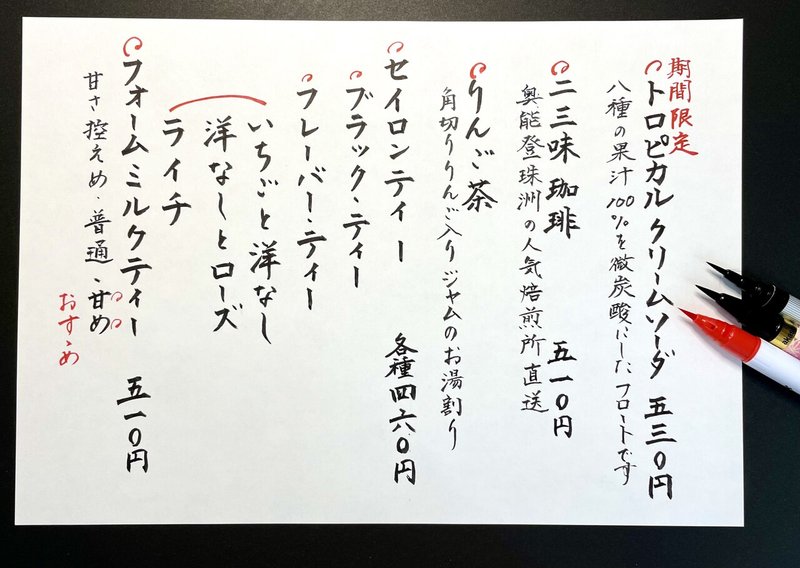 期間限定
トロピカルクリームソーダ 五三〇円
八種の果汁100%を微炭酸にしたフロートです
二三味珈琲 五一〇円
奥能登珠洲の人気焙煎所直送
りんご茶
角切りりんご入りジャムのお湯割り
セイロンティー 各種四六〇円
ブラック・ティー
フレーバー・ティー
いちごと洋なし
洋なしとローズ
ライチ
フォームミルクティー 五一〇円
甘さ控えめ・普通・甘め
おすすめ